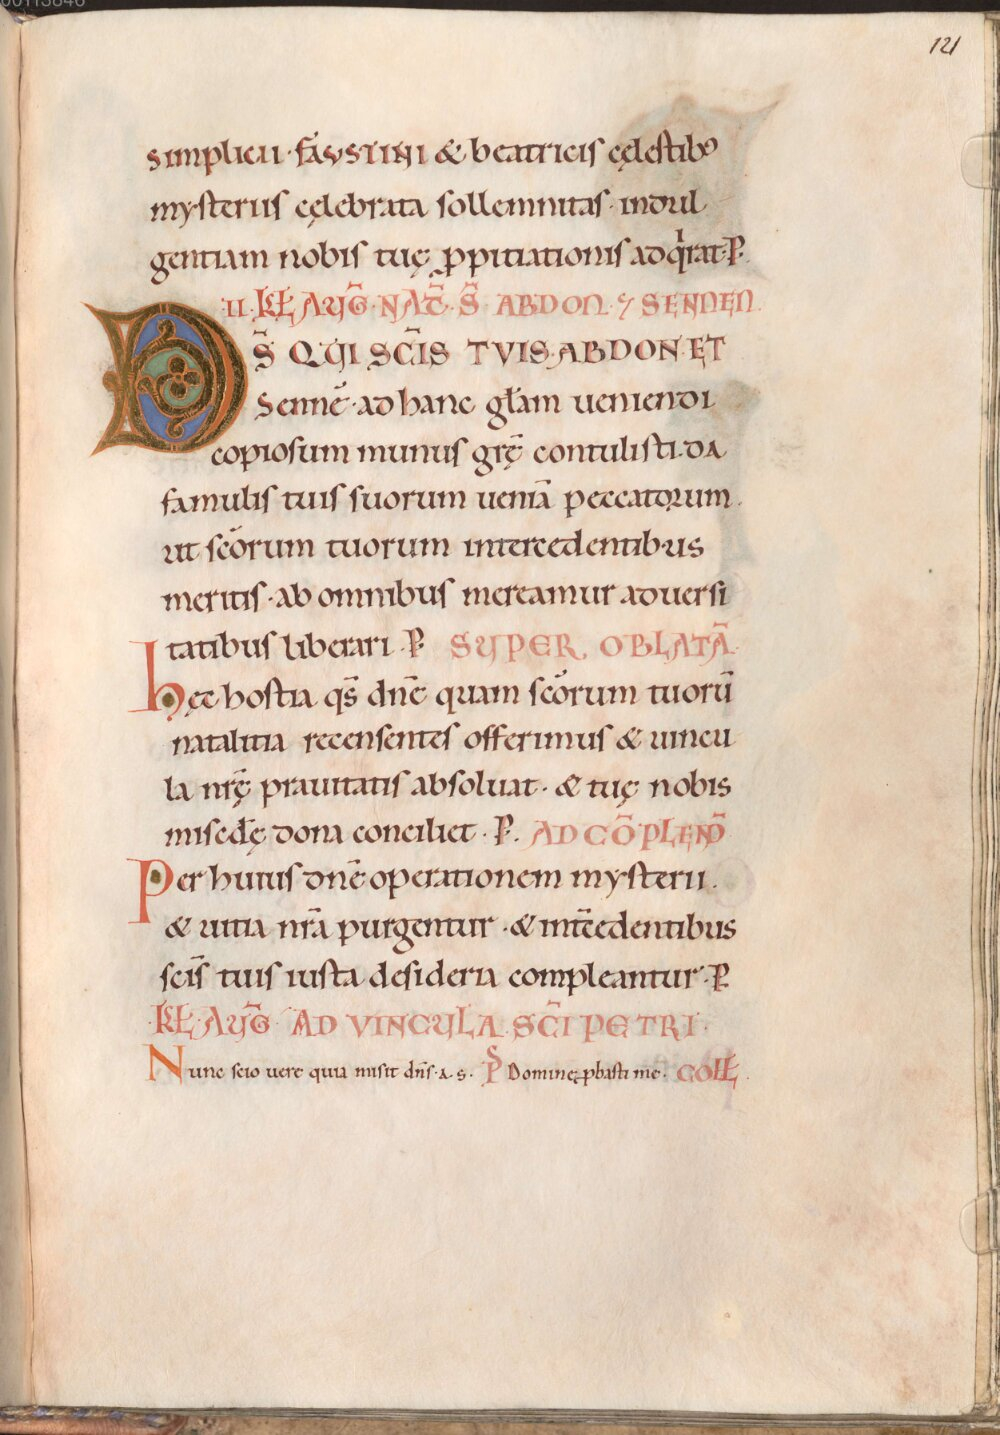 121
simplicii · faustini & beatricis cęlestib᷒
mysteriis cęlebrata sollemnitas · indul
gentiam nobis tuę ꝓpitiationis adq̇rat · P̄.
II · KL̄ AUG̃ · NAT̃ · S̃ ABDON · ⁊ SENNEN
D S̃ QUI SC̃IS TVIS · ABDON ET
Senneñ · ad hanc gl̃am ueniendi
copiosum munus grę̃ contulisti · da
famulis tuis suorum ueniã peccatorum .
ut sc̃orum tuorum intercedentibus
meritis · ab omnibus mereamur aduersi
tatibus liberari · P̄ SUPER OBLATÃ
hęc hostia qs̃ dñe quam sc̃orum tuorũ
natalitia recensentes offerimus & uincu
la nrę̃ prauitatis absoluat · & tuę nobis
miscd̃ę dona conciliet · P̄. AD CÕPLEND̃
Per huius dñe operationem mysterii .
& uitia nr̃a purgentur · & int̃cedentibus
sc̃is tuis iusta desideria compleantur · P̄
KL̄ · AUG̃ AD VINCULA SC̃I PETRI ·
Nunc scio uere quia misit dñs · a · s · P̃S Domine ꝓbasti me · COLL̄ .